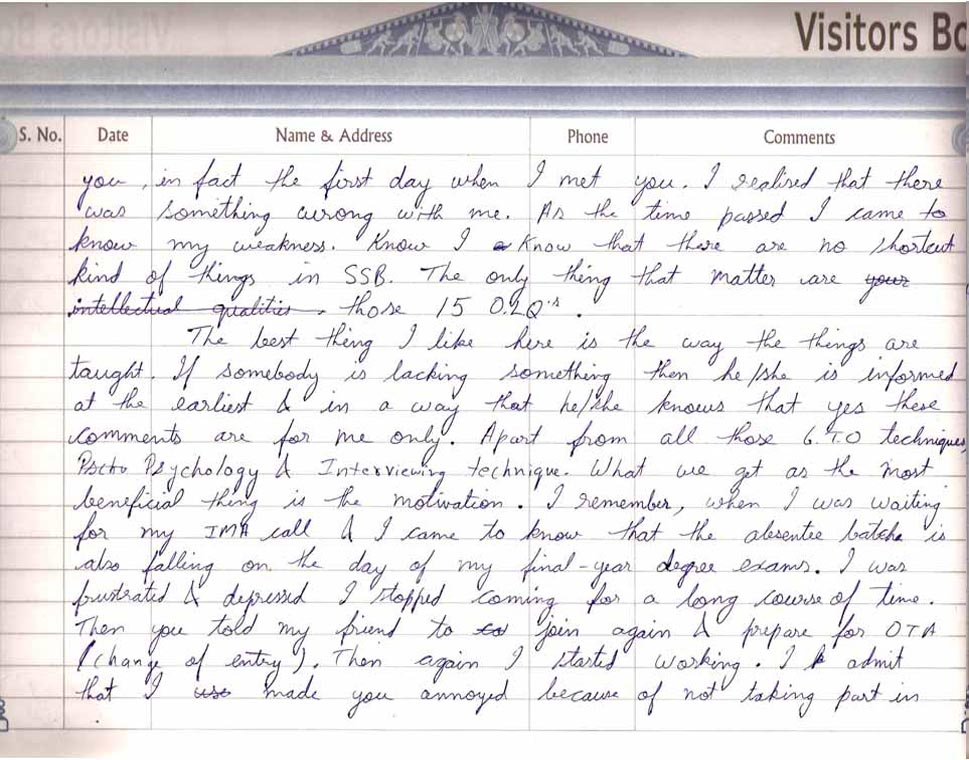 Visitors Bo
S. No. Date Name & Address Phone Comments
you, in fact the first day when I met you. I realised that there
was something wrong with me. As the time passed I came to
know my weakness. Know I know that there are no shortcut
kind of things in SSB. The only thing that matter are your
intellectual qualities. those 15 O.L.Q's.
The best thing I like here is the way the things are
taught. If somebody is lacking something then he/she is informed
at the earliest & in a way that he/she knows that yes these
comments are for me only. Apart from all those G.T.O techniques,
Psycho Psychology & Interviewing technique. What we get as the most
beneficial thing is the motivation. I remember, when I was waiting
for my IMA call & I came to know that the absentee batche is
also falling on the day of my final-year degree exams. I was
frustrated & depressed I stopped coming for a long course of time.
Then you told my friend to join again & prepare for OTA
(change of entry). Then again I started working. I admit
that I use made you annoyed because of not taking part in